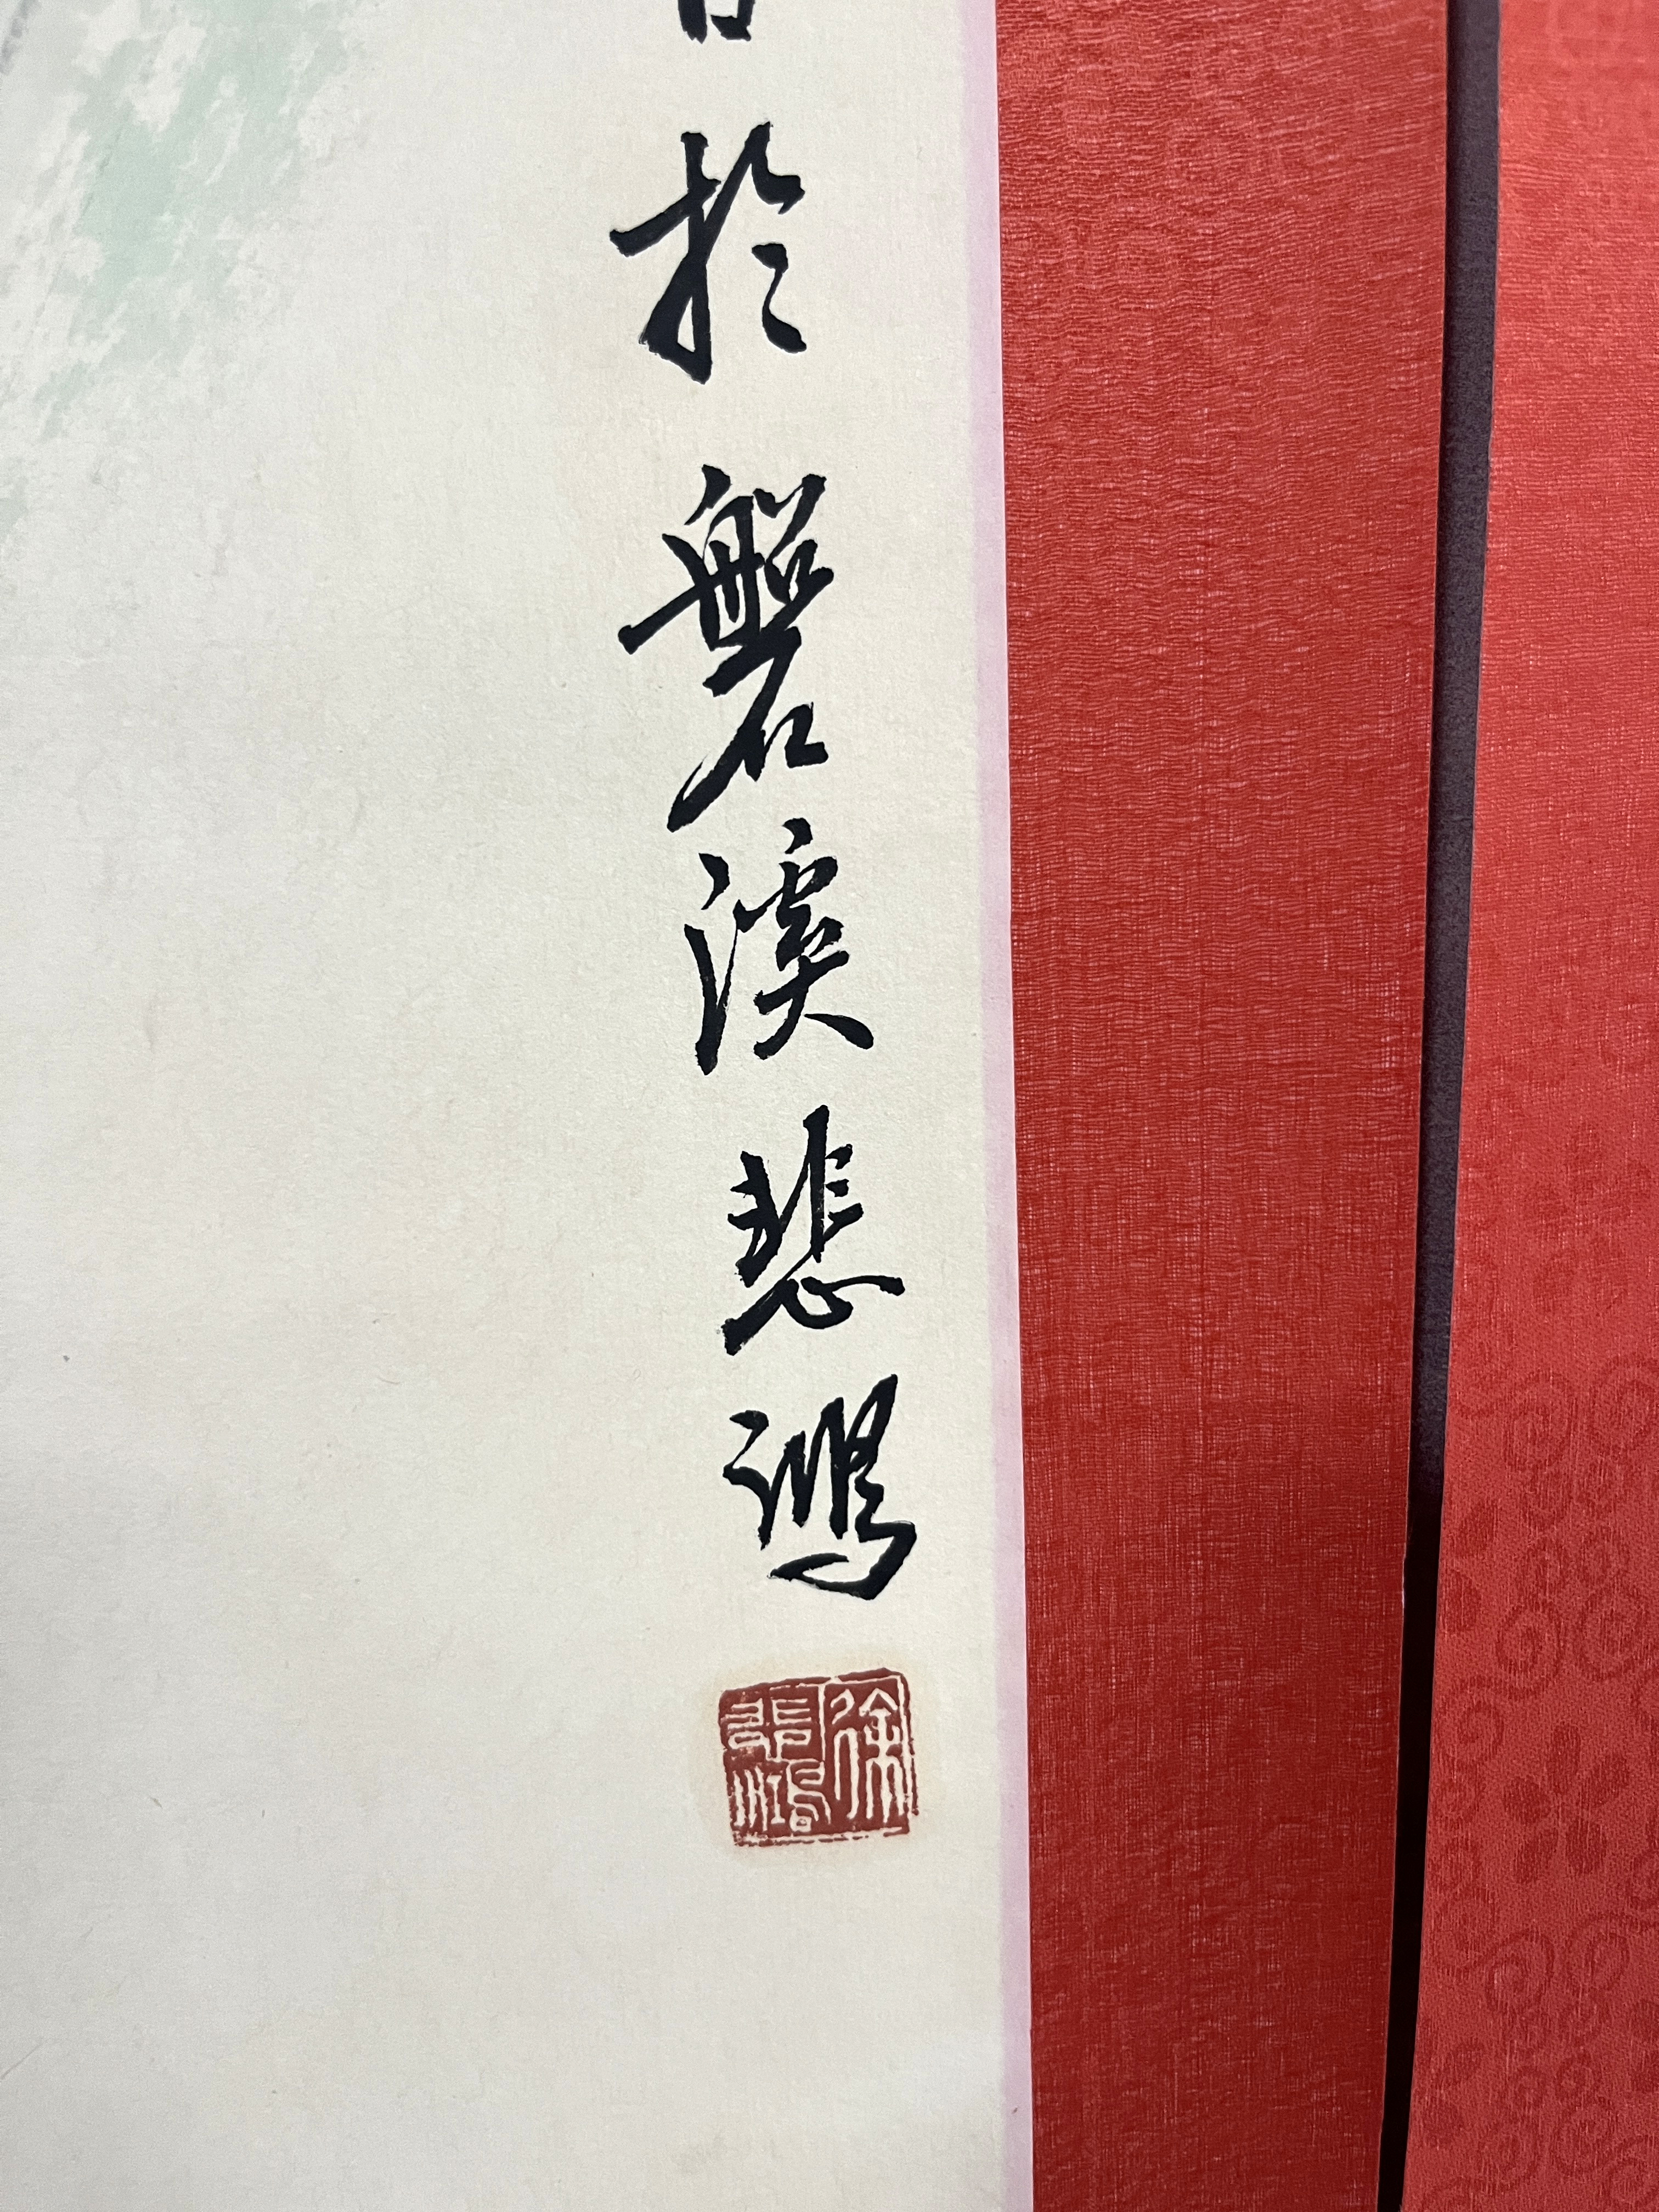 於磐溪悲鴻
徐悲鴻